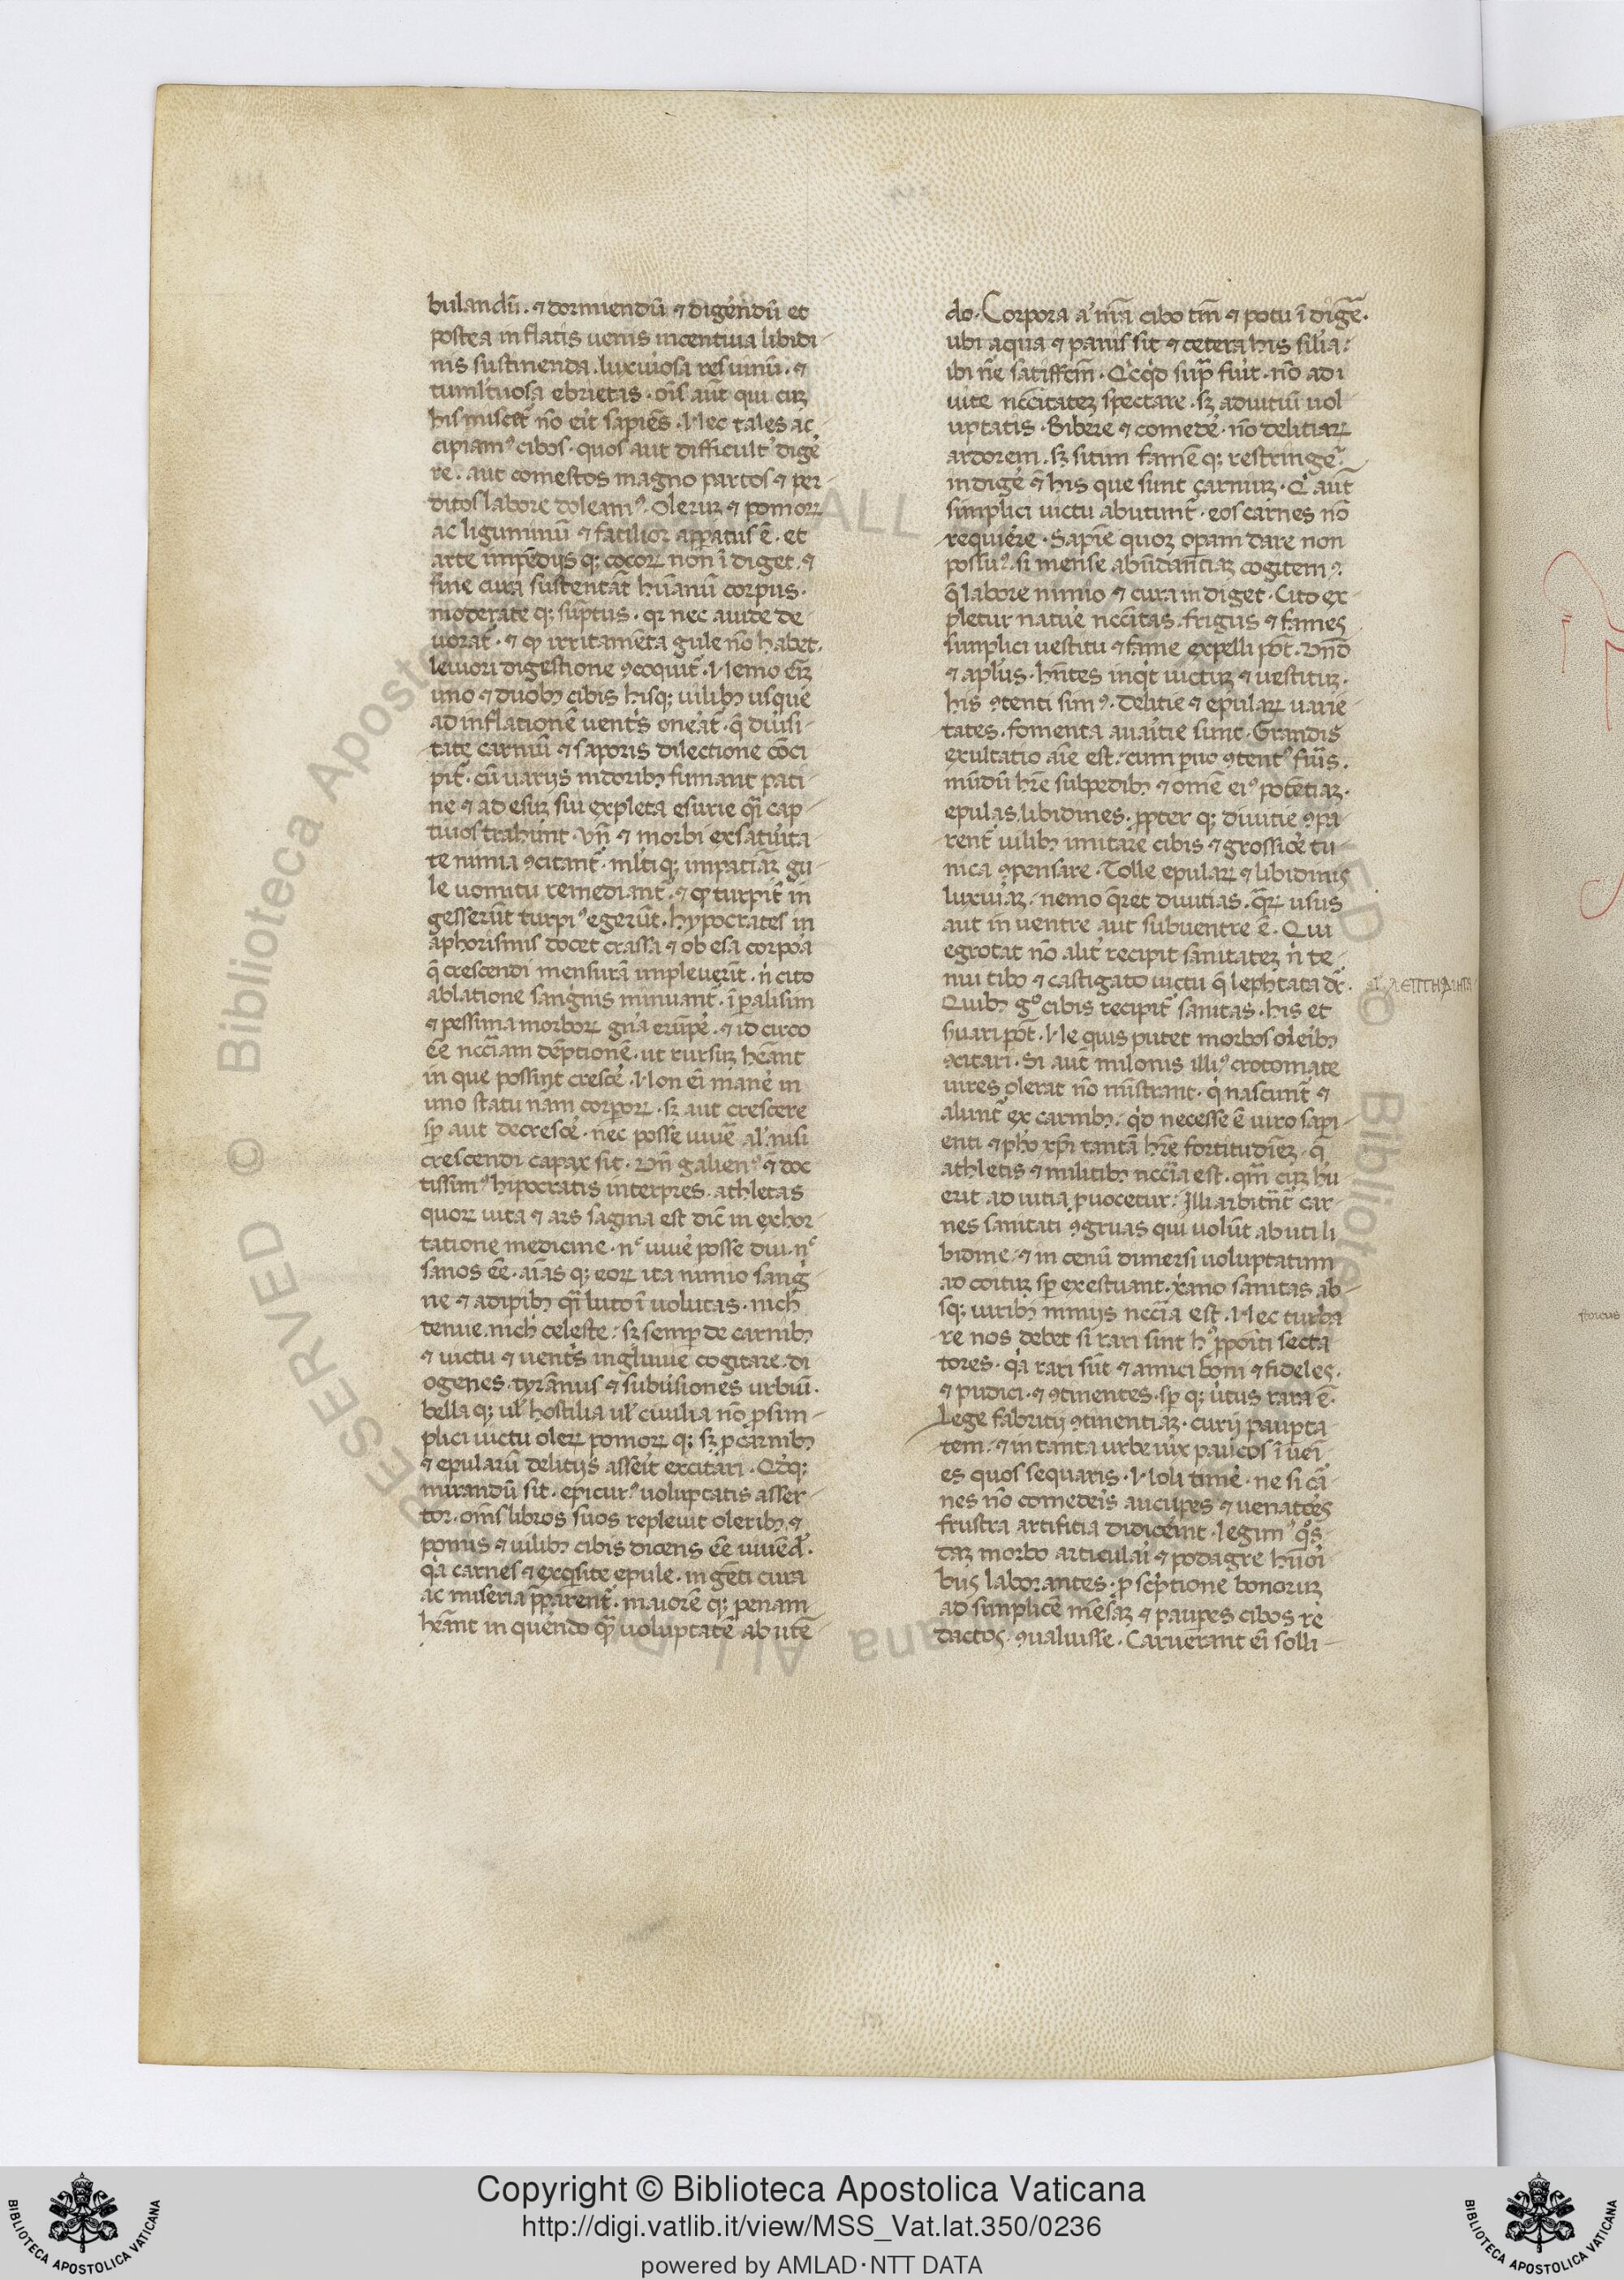 bulandũ. ⁊ dormiendũ ⁊ digẽndũ et
postea inflatis uenis incentiua libidi
nis sustinenda. luxuriosa res uinũ. ⁊
tumultuosa ebrietas. oĩs aũt qui cuʒ
his miscet̃ nõ erit sapiẽs. Nec tales ac
cipiam⁹ cibos. quos aut difficult̃ digẽ
re. aut comestos magno partos ⁊ per
ditos labore doleam⁹. Oleruʒ ⁊ pomoꝝ
ac liguminũ ⁊ facilior apꝑatus ẽ. et
arte impẽdijs qꝫ cocoꝝ non ĩdiget. ⁊
sine cura sustentat̃ huãnũ corpus.
moderate qꝫ sũptus. qꝛ nec auide de
uorat̃. ⁊ qꝫ irritamẽta gule nõ habet.
leuiori digestione ꝯcoquit̃. Nemo eĩʒ
uno ⁊ duobꝫ cibis hisqꝫ uilibꝫ usque
ad inflationẽ uent̃s onẽat̃. q̃ diũsi
tate carniũ ⁊ saporis dilectione cõci
pit̃. cũ uarijs nidoribꝫ fumant pati
ne ⁊ ad esuʒ sui expleta esurie q̃i cap
tiuos trahunt. Vñ ⁊ morbi ex saturita
te nimia ꝯcitant̃. ml̃ti qꝫ impatiãʒ gu
le uomitu remediant̃. ⁊ qꝫ turpit̃ in
gesserũt turpi⁹ egerũt. hypocrates in
aphorismis docet crassa ⁊ obesa corpoꝛa
q̃ crescendi mensurã impleuerĩt. ñ cito
ablatione sanguis minuant̃. ĩ ꝑalisim
⁊ pessima morboꝝ gña erũpẽ. ⁊ id circo
eẽ nccĩam dẽptionẽ. ut rursuʒ heãnt
in que possint crescẽ. Non eĩ manẽ in
uno statu nam corpoꝝ. sʒ aut crescere
sp̃ aut decrescẽ. nec posse uiuẽ aĩal nisi
crescendi capax sit. Vñ galien⁹ ⁊ doc
tissim⁹ hipocratis interpres. athletas
quoꝝ uita ⁊ ars sagina est dicit̃ in exhor
tatione medicine. nᶜ uiuẽ posse diu. nᶜ
sanos eẽ. aĩas qꝫ eoꝝ ita nimio sangĩ
ne ⁊ adipibꝫ q̃i luto ĩuolutas. nich̃
tenue. nich̃ celeste. sʒ semꝑ de carnibꝫ
⁊ uictu ⁊ uent̃s ingluuie cogitare. di
ogenes. tyrãnus ⁊ subũsiones urbiũ.
bella qꝫ uł hostilia uł ciuilia nõ ꝓ sim
plici uictu oleꝝ pomoꝝ qꝫ sʒ ꝓ carnibꝫ
⁊ epularũ delitijs asserit excitari. Qđqꝫ
mirandũ sit. epicur⁹ uoluptatis asser
tor. oms libros suos repleuit oleribꝫ. ⁊
pomis ⁊ uilibꝫ cibis dicens eẽ uiuẽd̃.
q̃a carnes ⁊ exq̃site epule. ingẽti cura
ac miseria p̃parent̃. maiorẽ qꝫ penam
heãnt in querẽdo q̃ uoluptatẽ abutẽ
do. Corpora aũ nr̃a cibo tm̃ ⁊ potu ĩdigẽt.
ubi aqua ⁊ panis sit ⁊ cetera his sĩlia.
ibi nẽ satiffcm̃. Qicqđ sup̃ fuit. nõ ad
uite nccĩtateʒ spectare. sʒ ad uitiũ uol
uptatis. Bibere ⁊ comedẽ. nõ delitiaꝝ
ardorem. sʒ sitim famẽ qꝫ restringẽ.
indigẽ ẽ his que sunt carniuʒ. Q aũt
simplici uictu abutunt̃. eos carnes nõ
requirẽre. Sapiẽ quoʒ opam dare non
possũ⁹. si mense abũdantiaʒ cogitem⁹.
q̃ labore nimio ⁊ cura indiget. Cito ex
pletur natuẽ nccĩtas. frigus ⁊ fames
simplici uestitu ⁊ fame expelli põt. Vnđ
⁊ apl̃us. hñtes inqt̃ uictuʒ ⁊ uestituʒ.
his ꝯtenti sim⁹. delitie ⁊ epulaꝝ uarie
tates. fomenta auaritie sunt. Grandis
exultatio aĩe est. cum paruo ꝯtent⁹ fũis.
mũdũ hr̃e sub pedibꝫ ⁊ omẽ ei⁹ potẽtiaʒ.
epulas. libidines. ꝓpter qꝫ diuitie ꝯpa
rent̃ uilibꝫ mutare cibis ⁊ grossiore tu
nica ꝯpensare. Tolle epulaꝝ ⁊ libidinis
luxuriaʒ. nemo q̃ret diuitias. q̃ꝝ usus
aut in uentre aut sub uentre ẽ. Qui
egrotat nõ alit̃ recipit sanitateʒ ñ te
nui cibo ⁊ castigato uictu q̃ leptitata dr̃.
Quibꝫ g⁰ cibis recipit̃ sanitas. his et
ẽuari põt. Ne quis putet morbos oleribꝫ
ꝯcitari. Si aũt milonis illi⁹ crotomate
uires olerat nõ mĩstrant. q̃ nascunt̃ ⁊
alunt̃ ex carnibꝫ. qđ necesse ẽ uiro sapi
enti ⁊ pho xp̃i tantã hr̃e fortitudinẽʒ. q̃
athletis ⁊ militibꝫ nccĩa est. qm̃ cuʒ hũ
erit ad uitia ꝓuocetur. Illi arbitrẽt car
nes sanitati ꝯgruas qui uolũt abuti li
bidine. ⁊ in cenũ dimersi uoluptatum
ad coituʒ sp̃ exestuant. xp̃iano sanitas ab
sqꝫ uiribꝫ nimijs nccĩa est. Nec turba
re nos debet si rari sint h⁹ ꝓpositi secta
tores. q̃a rari sũt ⁊ amici boni ⁊ fideles.
⁊ pudici. ⁊ ꝯtinentes. sp̃ qꝫ uirtus rara ẽ.
Lege fabritij ꝯtinentiaʒ. curij pauꝑta
tem. ⁊ in tanta urbe uix paucos ĩueĩ
es quos sequaris. Noli timẽ. ne si car
nes nõ comederis aucupes ⁊ uenatores
frustra artifitia didicerint. Legim⁹ q̃s
daʒ morbo articulari ⁊ podagre humori
bus laborantes. ꝓscptione bonoruʒ
ad simplicẽ mẽsaʒ ⁊ pauꝑes cibos re
dactos. ꝯualuisse. Caruerant eĩ solli
Copyright © Biblioteca Apostolica Vaticana
http://digi.vatlib.it/view/MSS_Vat.lat.350/0236
powered by AMLAD·NTT DATA
BIBLIOTECA APOSTOLICA VATICANA
BIBLIOTECA APOSTOLICA VATICANA